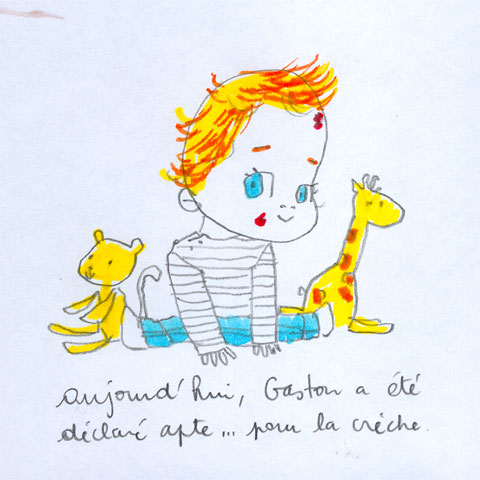 aujourd'hui, Gaston a été
déclaré apte... pour la crèche.